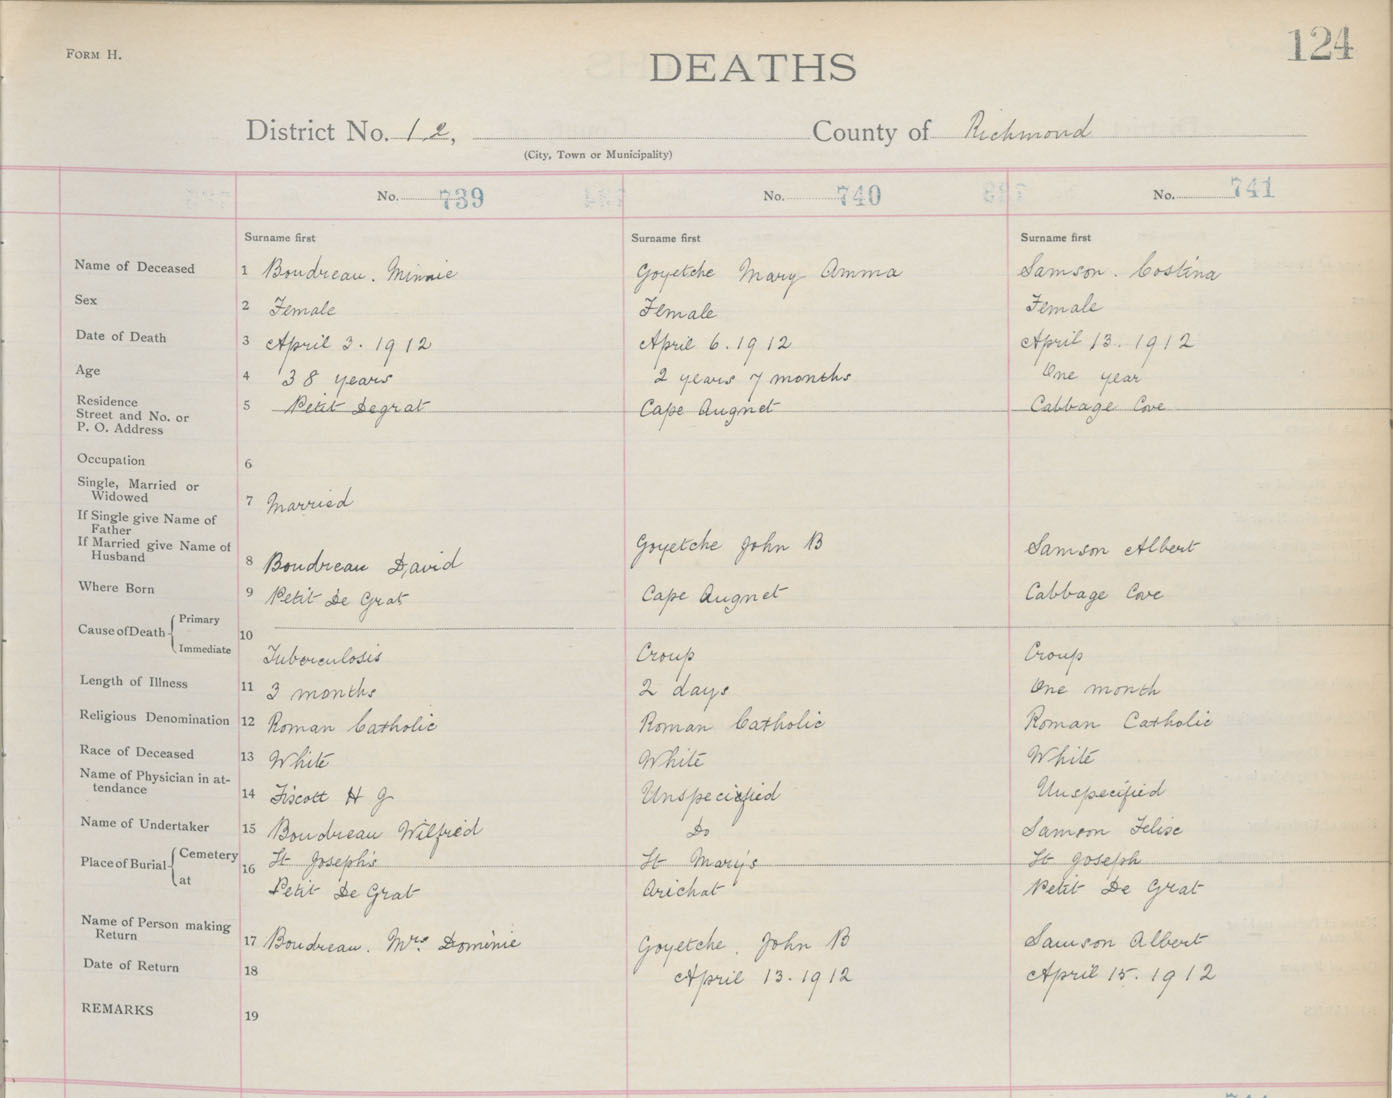 FORM H.
124
DEATHS
District No. 12, County of Richmond
(City, Town or Municipality)
No. 739 No. 740 No. 741
Surname first Surname first Surname first
Name of Deceased 1 Boudreau. Minnie Goyetche Mary Amma Samson. Costina
Sex 2 Female Female Female
Date of Death 3 April 3. 1912 April 6. 1912 April 13. 1912
Age 4 38 years 2 years 7 months One year
Residence
Street and No. or
P. O. Address 5 Petit Degrat Cape Augnet Cabbage Cove
Occupation 6
Single, Married or
Widowed 7 Married
If Single give Name of
Father
If Married give Name of
Husband 8 Boudreau David Goyetche John B Samson Albert
Where Born 9 Petit De Grat Cape Augnet Cabbage Cove
Cause of Death Primary
10
Immediate Tuberculosis Croup Croup
Length of Illness 11 3 months 2 days One month
Religious Denomination 12 Roman Catholic Roman Catholic Roman Catholic
Race of Deceased 13 White White White
Name of Physician in at-
tendance 14 Fiscott H J Unspecified Unspecified
Name of Undertaker 15 Boudreau Wilfred Do Samson Felise
Place of Burial Cemetery 16 St Joseph's St Mary's St Joseph
at Petit De Grat Arichat Petit De Grat
Name of Person making
Return 17 Boudreau. Mrs Dominie Goyetche. John B Samson Albert
Date of Return 18 April 13. 1912 April 15. 1912
REMARKS 19